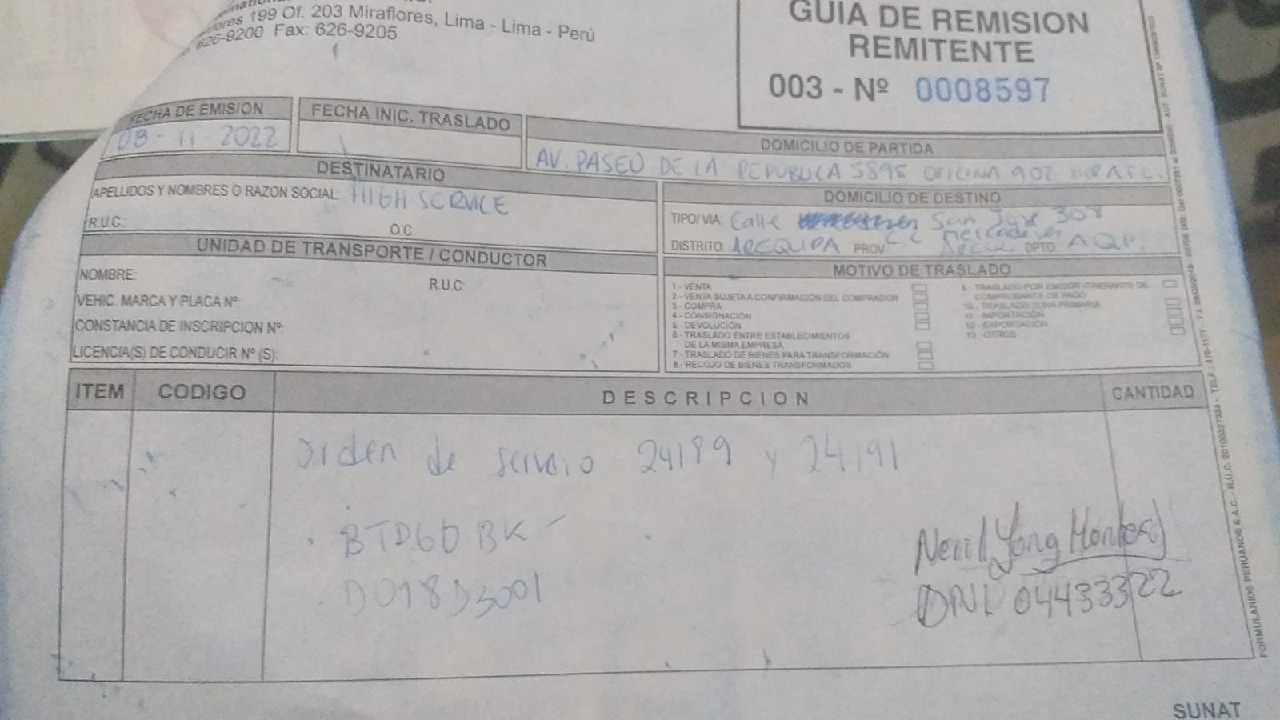 199 Of. 203 Miraflores, Lima - Lima - Perú
626-9200 Fax: 626-9205
GUIA DE REMISION
REMITENTE
003 - Nº 0008597
FECHA DE EMISION
08-11-2022
FECHA INIC. TRASLADO
DOMICILIO DE PARTIDA
AV. PASEO DE LA REPUBLICA 5895 OFICINA 902
DESTINATARIO
APELLIDOS Y NOMBRES O RAZON SOCIAL: HIGH SERVICE
R.U.C: O.C
DOMICILIO DE DESTINO
TIPO/VIA: Calle San Jose 308
CC Mercaderes
DISTRITO: AREQUIPA PROV DPTO AQP.
UNIDAD DE TRANSPORTE / CONDUCTOR
NOMBRE: R.U.C:
VEHIC. MARCA Y PLACA Nº:
CONSTANCIA DE INSCRIPCION Nº:
LICENCIA(S) DE CONDUCIR Nº (S):
MOTIVO DE TRASLADO
1 - VENTA
2 - VENTA SUJETA A CONFIRMACIÓN DEL COMPRADOR
3 - COMPRA
4 - CONSIGNACIÓN
5 - DEVOLUCIÓN
6 - TRASLADO ENTRE ESTABLECIMIENTOS
DE LA MISMA EMPRESA
7 - TRASLADO DE BIENES PARA TRANSFORMACIÓN
8 - RECOJO DE BIENES TRANSFORMADOS
9 - TRASLADO POR EMISOR ITINERANTE DE
COMPROBANTE DE PAGO
10 - TRASLADO ZONA PRIMARIA
11 - IMPORTACIÓN
12 - EXPORTACIÓN
13 - OTROS
ITEM CODIGO DESCRIPCION CANTIDAD
orden de servicio 24189 y 24191
BTD60BK
D018D3001
Yong Montes
DNI 04433322
FORMULARIOS PERUANOS S.A.C. - R.U.C.
SUNAT